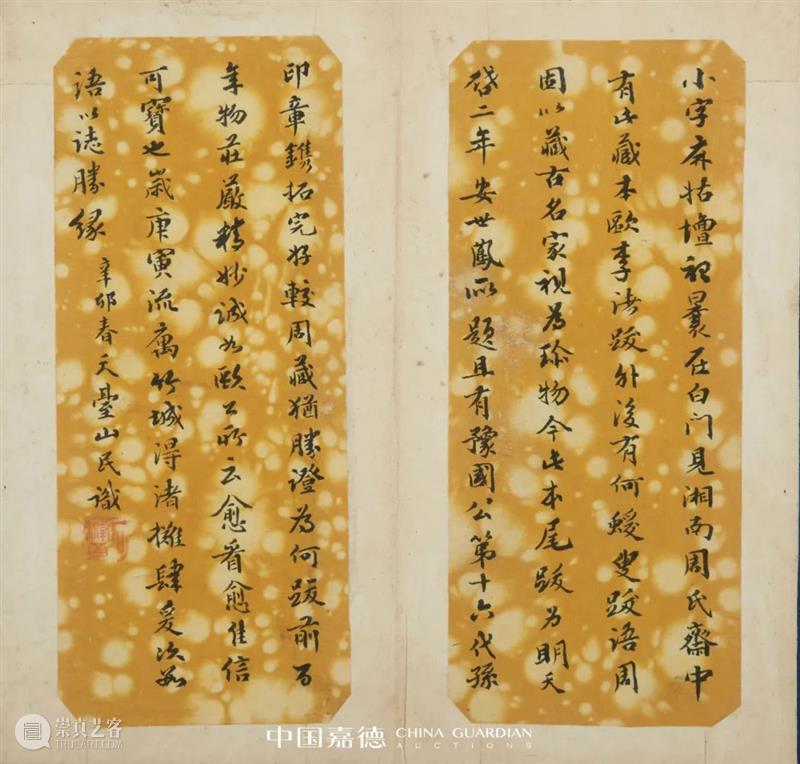 小字麻姑壇記曩在白门見湘南周氏齋中
有此藏本歐李諸跋外後有何蝯叟跋語周
固以藏古名家視為珍物今此本尾跋为明天
啓二年安世鳳所題且有豫國公第十六代孫
印章鐫拓完好較周藏猶勝證為何跋前百
年物莊嚴精妙誠如歐公所云愈看愈佳信
可寶也歲庚寅流寓竹城得諸攤肆爰次數
語以誌勝緣
辛卯春天臺山民識
崇真艺客
WWW.TRUEART.COM
中国嘉德 CHINA GUARDIAN
AUCTIONS